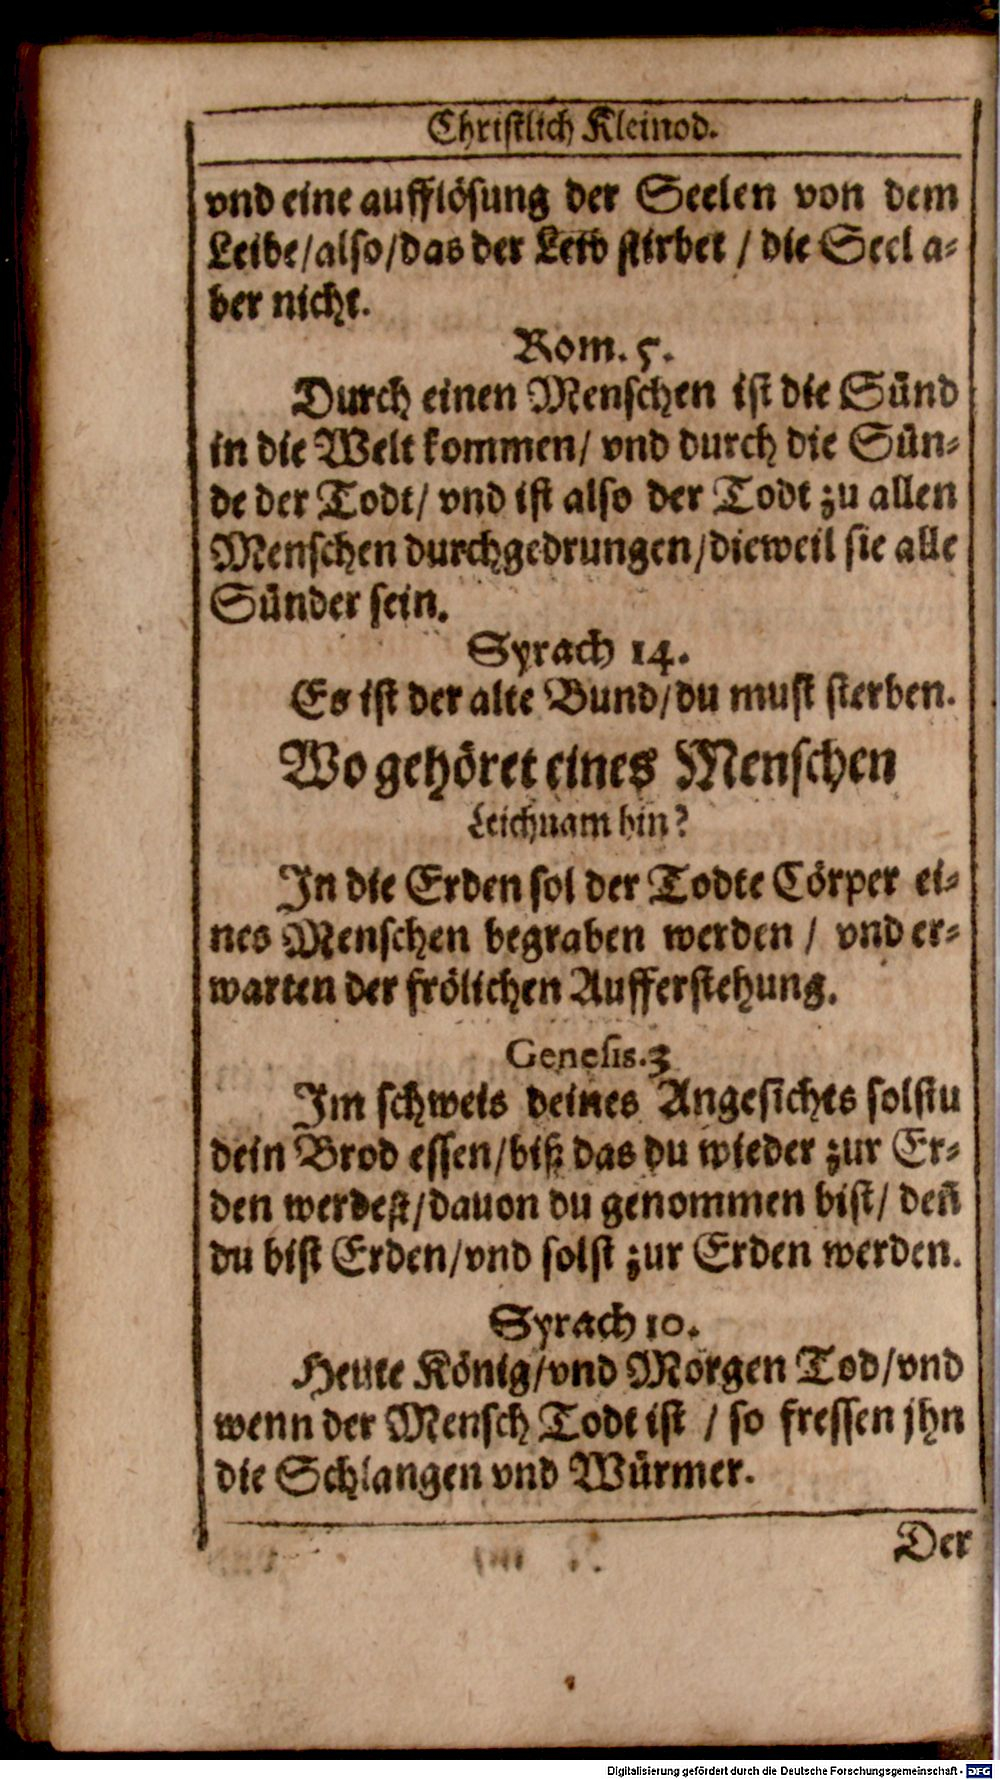 Christlich Kleinod.
vnd eine aufflösung der Seelen von dem
Leibe/also/das der Leib stirbet / die Seel a⸗
ber nicht.
Rom. 5.
Durch einen Menschen ist die Sünd
in die Welt kommen/ vnd durch die Sün⸗
de der Todt/ vnd ist also der Todt zu allen
Menschen durchgedrungen/dieweil sie alle
Sünder sein.
Syrach 14.
Es ist der alte Bund/du must sterben.
Wo gehöret eines Menschen
Leichnam hin?
In die Erden sol der Todte Cörper ei⸗
nes Menschen begraben werden / vnd er⸗
warten der frölichen Aufferstehung.
Genesis.3
Im schweis deines Angesichts solstu
dein Brod essen/biß das du wieder zur Er⸗
den werdest/dauon du genommen bist/ deñ
du bist Erden/vnd solst zur Erden werden.
Syrach 10.
Heute König/vnd Morgen Tod/vnd
wenn der Mensch Todt ist / so fressen jhn
die Schlangen vnd Würmer.
Der
Digitalisierung gefördert durch die Deutsche Forschungsgemeinschaft - DFG